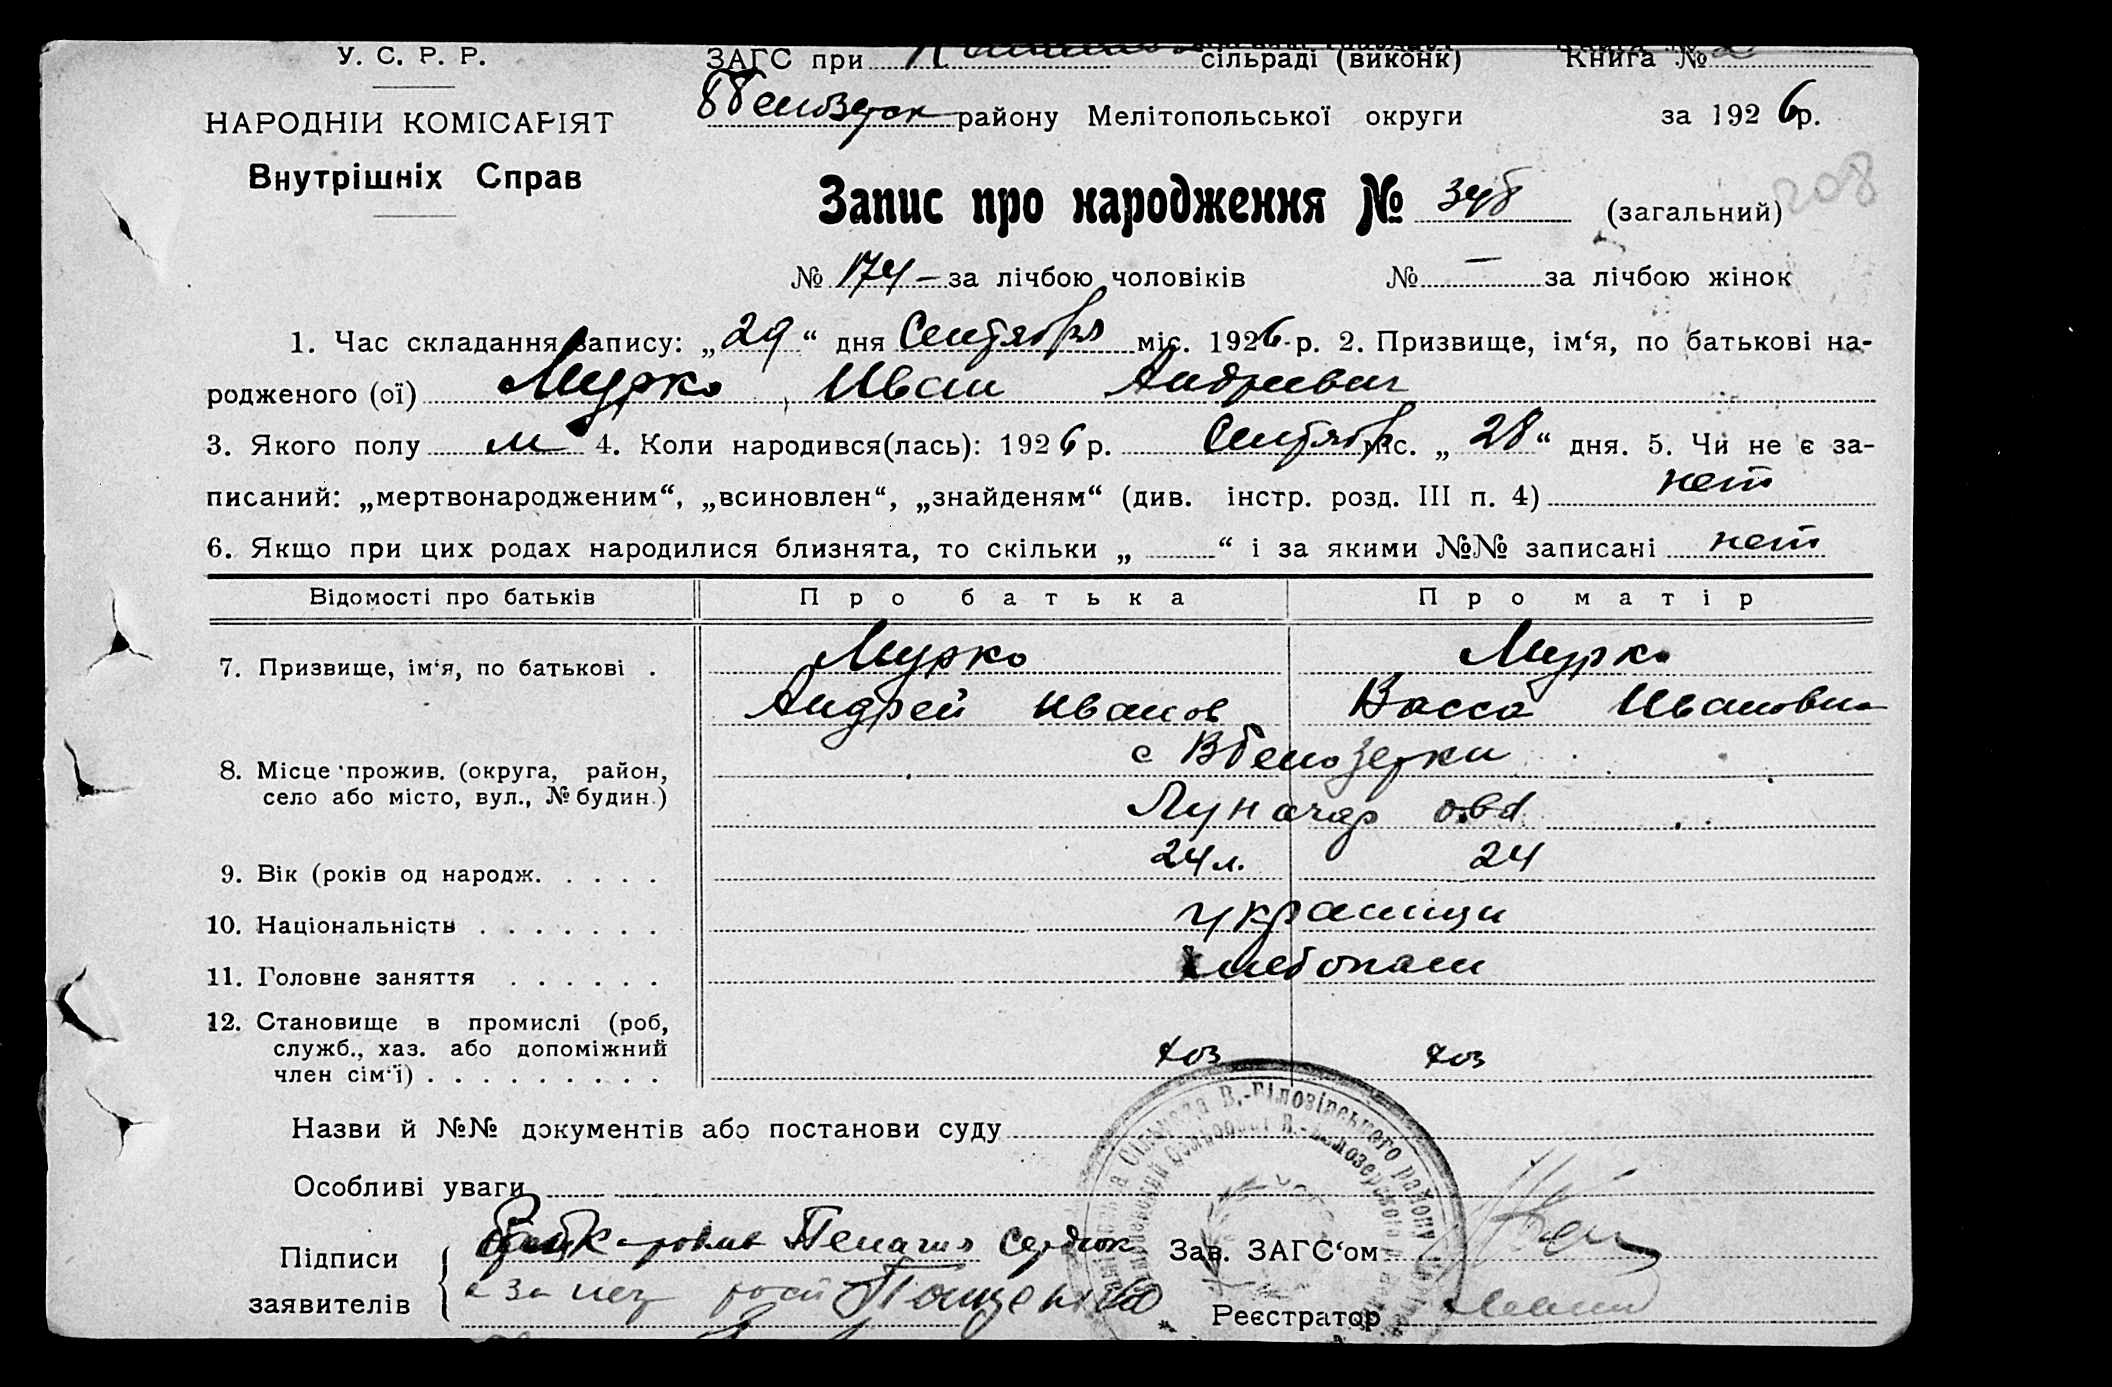 У. С. Р. Р.
ЗАГС при сільраді (виконк) Книга № 2
НАРОДНІЙ КОМІСАРІЯТ
Внутрішніх Справ
ВБелозерск району Мелітопольської округи за 1926 р.
Запис про народження № 348 (загальний) 208
№ 174 – за лічбою чоловіків № – за лічбою жінок
1. Час складання запису: „29“ дня Сентября міс. 1926 р. 2. Призвище, ім‘я, по батькові на-
родженого (ої) Мурко, Иван Андреевич
3. Якого полу м 4. Коли народився(лась): 1926 р. Сентября міс. „28“ дня. 5. Чи не є за-
писаний: „мертвонародженим“, „всиновлен“, „знайденям“ (див. інстр. розд. III п. 4) нет
6. Якщо при цих родах народилися близнята, то скільки „ “ і за якими №№ записані нет
Відомості про батьків Про батька Про матір
7. Призвище, ім‘я, по батькові . Мурко Мурко
Андрей Иванов Васса Ивановна
8. Місце прожив. (округа, район,
село або місто, вул., № будин.)
с ВБелозерки
Луначар
9. Вік (років од народж. . . . . 24 л. 24
10. Національність . . . . . . . украинцы
11. Головне заняття . . . . . . хлебопаш
12. Становище в промислі (роб,
служб., хаз. або допоміжний
член сім‘ї) . . . . . . . . . хоз хоз
Назви й №№ документів або постанови суду
Особливі уваги
Підписи
заявителів
Пелагия Сердюк
Зав. ЗАГС‘ом
а за нег росп
Реєстратор
Сільрада В.-Білозірського району